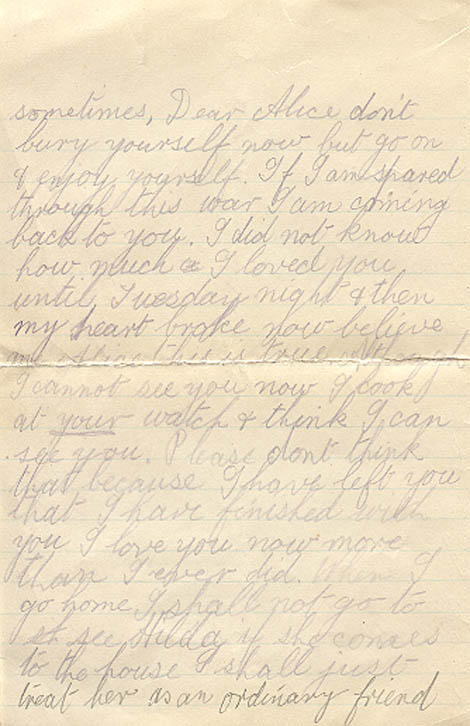 sometimes, Dear Alice don't
bury yourself now but go on
& enjoy yourself. If I am spared
through this war I am coming
back to you. I did not know
how much a I loved you
until Tuesday night & then
my heart broke now believe
me Alice this is true although
I cannot see you now I look
at your watch & think I can
see you. Please dont think
that because I have left you
that I have finished with
you I love you now more
than I ever did. When I
go home I shall not go to
see Hilda if she comes
to the house I shall just
treat her as an ordinary friend